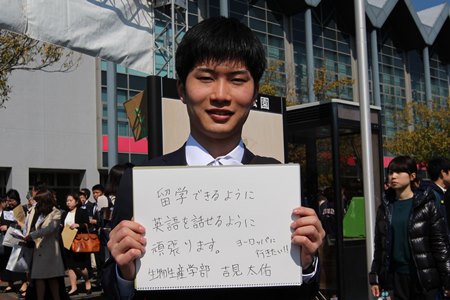 留学できるように
英語を話せるように
頑張ります。
ヨーロッパに
行きたい!!
生物生産学部 吉見 太佑